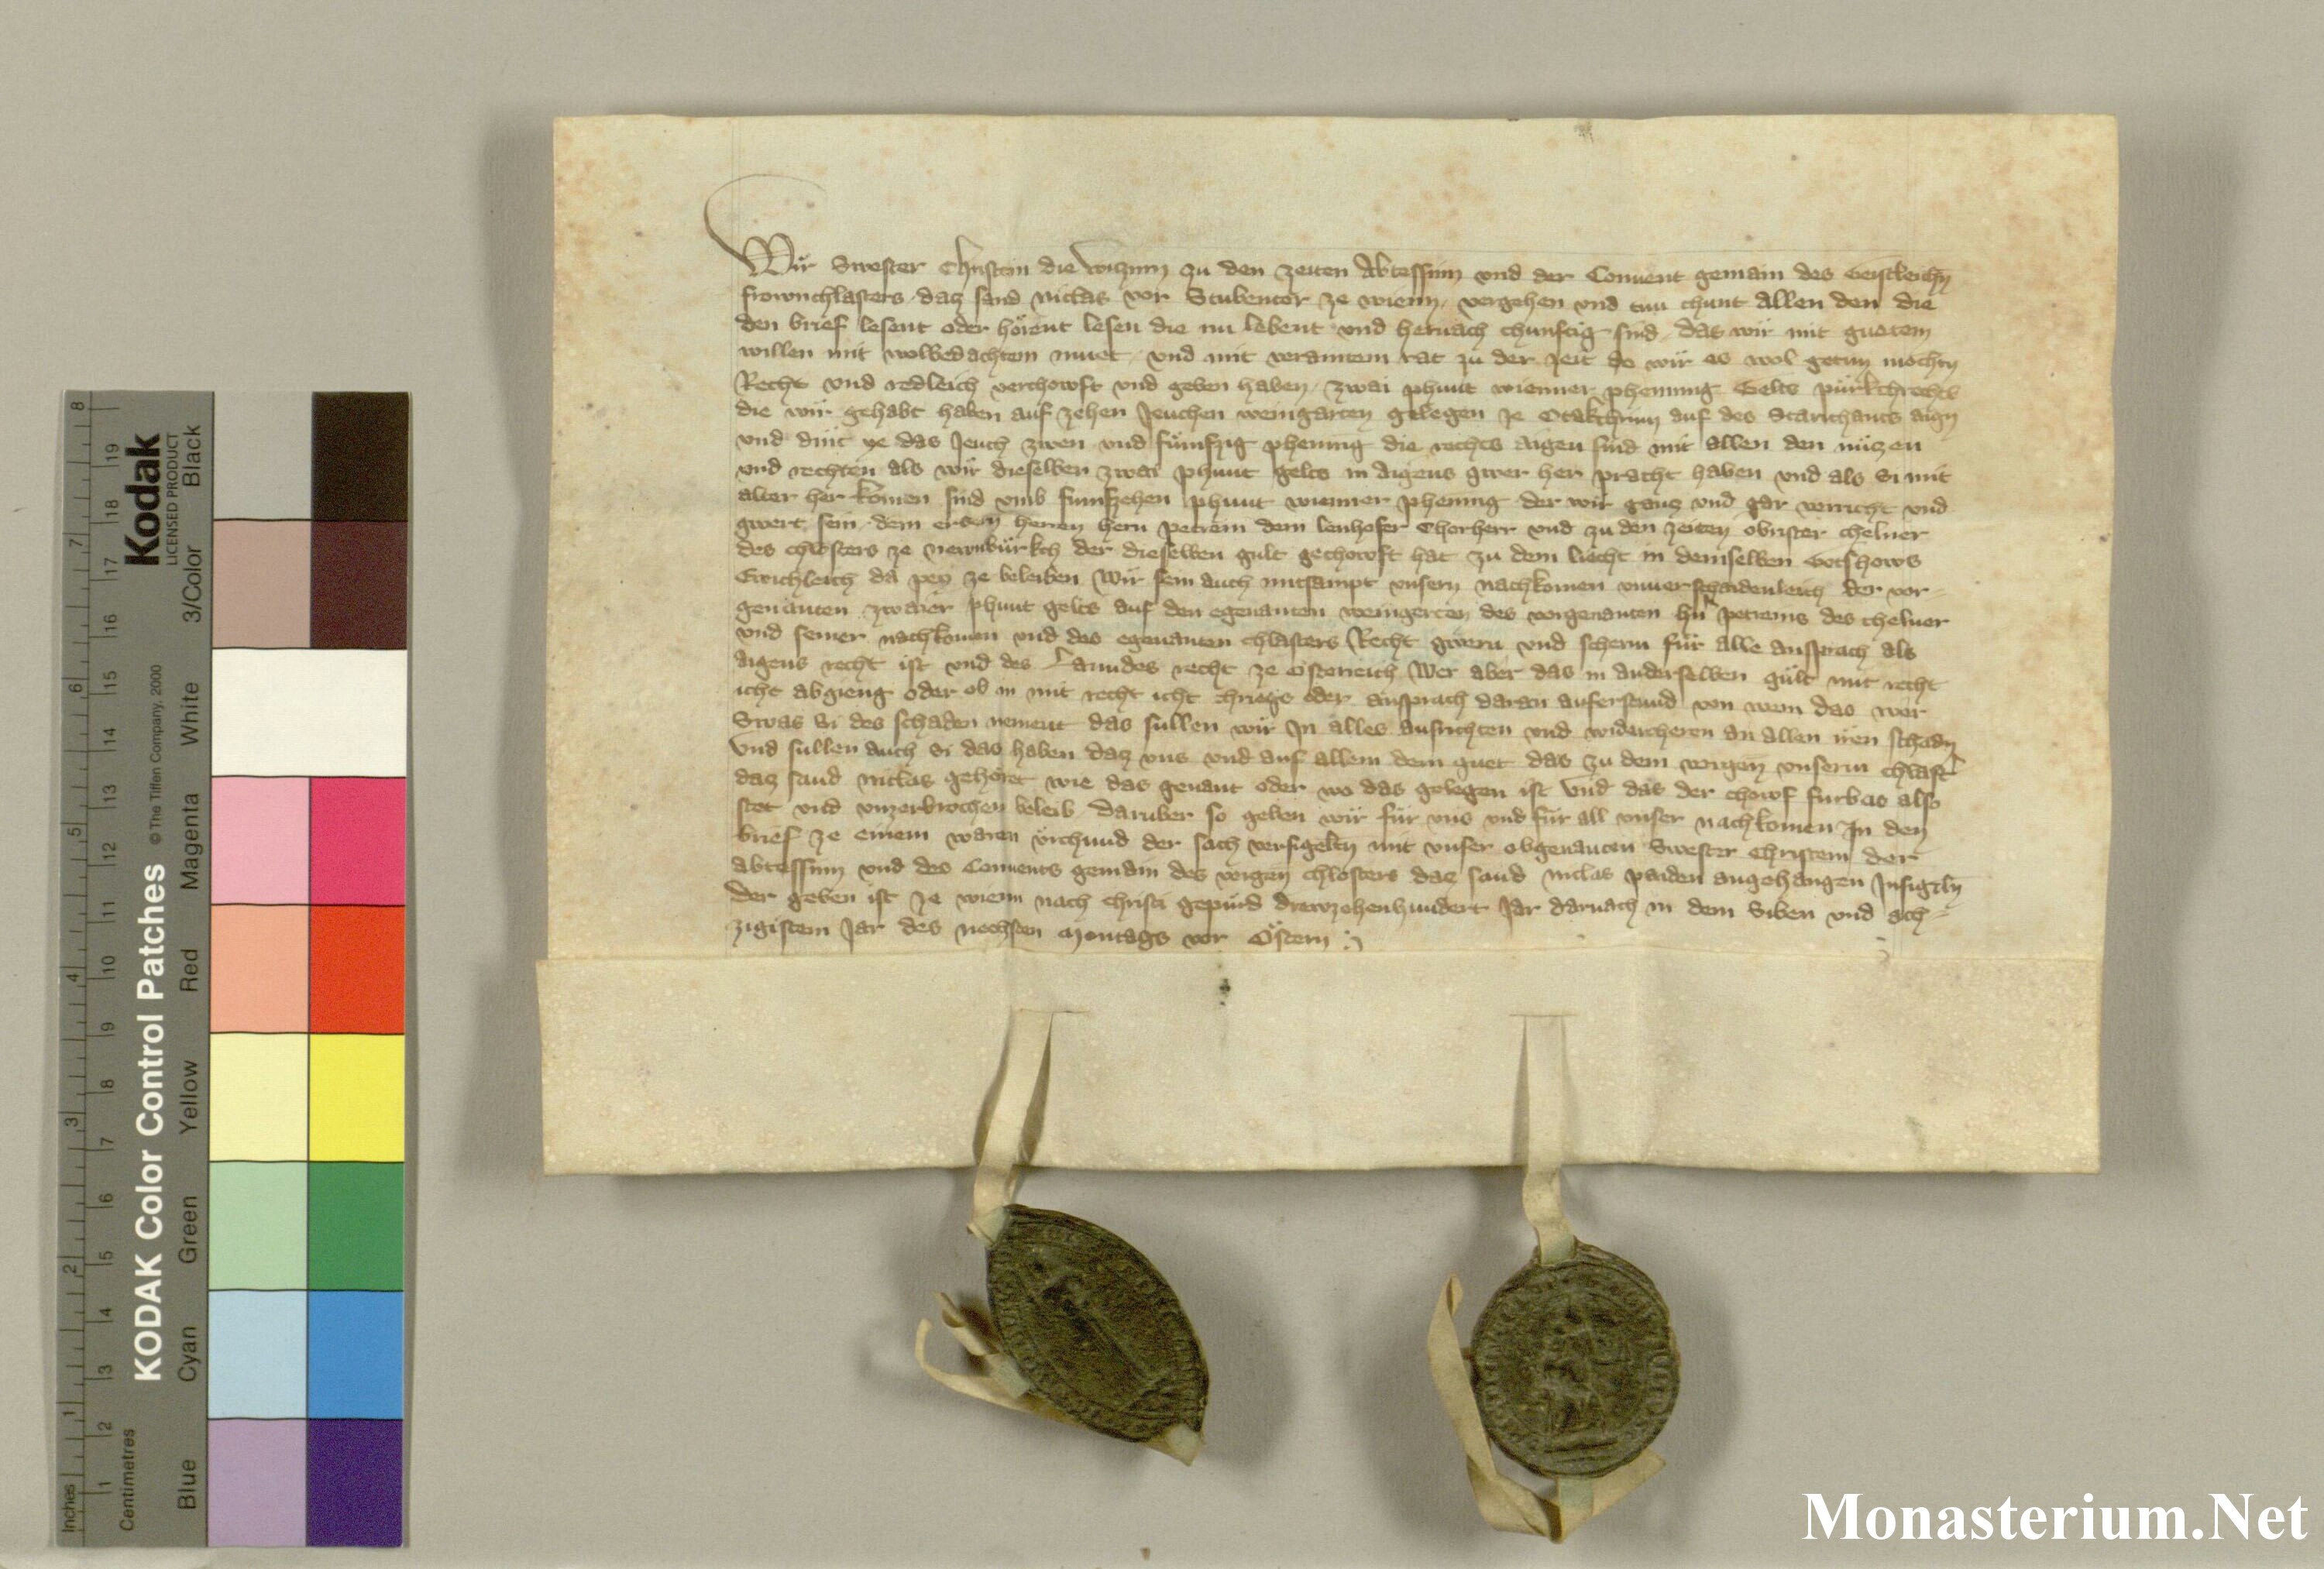 Wir Swester Christein die wizinn zu den zeiten Abtessinn vnd der Conuent gemain des Geistleichn
frownchlasters daz sand niclas vor Stubentor ze wienn vergehen vnd tun chunt allen den die
den brief lesent oder hörent lesen die nu lebent vnd hernach chunftig sind das wir mit guetem
willen mit wolbedachtem muet vnd mit veraintem rat zu der zeit do wir es wol getun mochtn
Recht vnd redleich verchowft vnd geben haben zwai phunt wienner phenning Gelts pürkchrechts
die wir gehabt haben auf zehen Jeuchen weingarten gelegen ze Otakchrinn auf des Starichants aign
vnd dint ye das Jeuch zwen vnd fümfzig phening die rechts aigen sind mit allen den nüzen
vnd rechten als wir dieselben zwai phunt gelts in aigens gwer her pracht haben vnd als si mit
alter her komen sind vmb fumfzehen phunt wienner phening der wir ganz vnd gar verricht vnd
gwert sein dem ersern herren hern petrein dem lenhofer Chorherr vnd zu den zeiten obrister chelner
des chlosters ze newnbürkch der dieselben gult gechowft hat zu dem liecht in demselben Gotshows
Ewichleich da pey ze beleiben Wir sein auch mitsampt vnsern nachkomen vnuerschaidenleich der vor-
genanten zwaier phunt gelts auf den egenanten weingerten des vorgenanten hn petreins des chelner
vnd seiner nachkomen vnd des egenanten chlasters Recht gwern vnd scherm für alle ansprach als
aigens recht ist vnd des Lanndes recht ze Osterreich Wer aber das in anderselben gült mit recht
icht abgieng oder ob in mit recht icht chriegs oder ansprach daran auferstund von wem das wer
Swas si des schaden nement das sullen wir In alles ausrichten vnd widercheren an allen iren schadn
Vnd sullen auch si das haben daz vns vnd auf allem dem guet das zu dem vorgen vnserm chlast
daz sand niclas gehöret wie das genant oder wo das gelegen ist Vnd das der chowf furbas also
stet vnd vnzerbrochen beleib Daruber so geben wir für vns vnd für all vnser nachkomen In den
brief ze einem waren vrchund der sach versigeltn mit vnser obgenanten Swester Christein der
abtessinn vnd des Conuents gemain des vorgen chlosters daz sand niclas paiden angehangen Insigeln
Der geben ist ze wienn nach christi gepurd drewzehenhundert Jar darnach in dem Siben vnd ach-
zigistem Jar des nechsten Montags vor Östern
Kodak
LICENSED PRODUCT
KODAK Color Control Patches
© The Tiffen Company, 2000
Black
3/Color
White
Magenta
Red
Yellow
Green
Cyan
Blue
Inches
1 2 3 4 5 6 7 8
Centimetres
1 2 3 4 5 6 7 8 9 10 11 12 13 14 15 16 17 18 19
Monasterium.Net